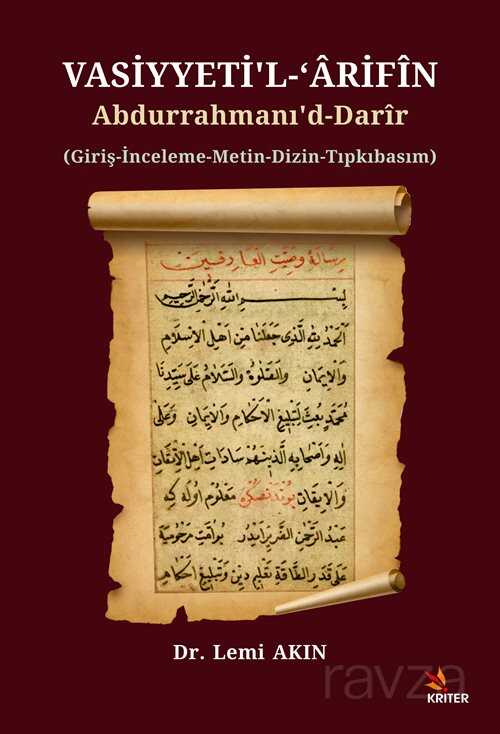 VASİYYETİ'L-‘ÂRİFÎN
Abdurrahmanı'd-Darîr
(Giriş-İnceleme-Metin-Dizin-Tıpkıbasım)
رسالة وصيت العارفين
بسم الله الرحمن الرحيم
اَلْحَمْدُ لِلّٰهِ الَّذِى جَعَلَنَا مِنْ اَهْلِ الْاِسْلَامِ
وَالْاِيمَانِ وَالصَّلٰوةُ وَالسَّلَامُ عَلٰى سَيِّدِنَا
مُحَمَّدٍ بُعِثَ لِتَبْلِيغِ الْاَحْكَامِ وَالْاِيمَانِ وَعَلٰى
اٰلِهِ وَاَصْحَابِهِ الَّذِينَ هُمْ سَادَاتُ اَهْلِ الْاِتْقَانِ
وَالْاِيقَانِ بُوندَنصكره مَعْلُوم اوله كه
عَبْدُ الرَّحْمٰنِ الضَّرِيرُ اَيْدُر بُو اُمَّتِ مَرْحُومَيه
عَلٰى قَدْرِ الطَّاقَةِ تَعْلِيمِ دِين وَتَبْلِيغِ اَحْكَام
Dr. Lemi AKIN
ravza
KRİTER